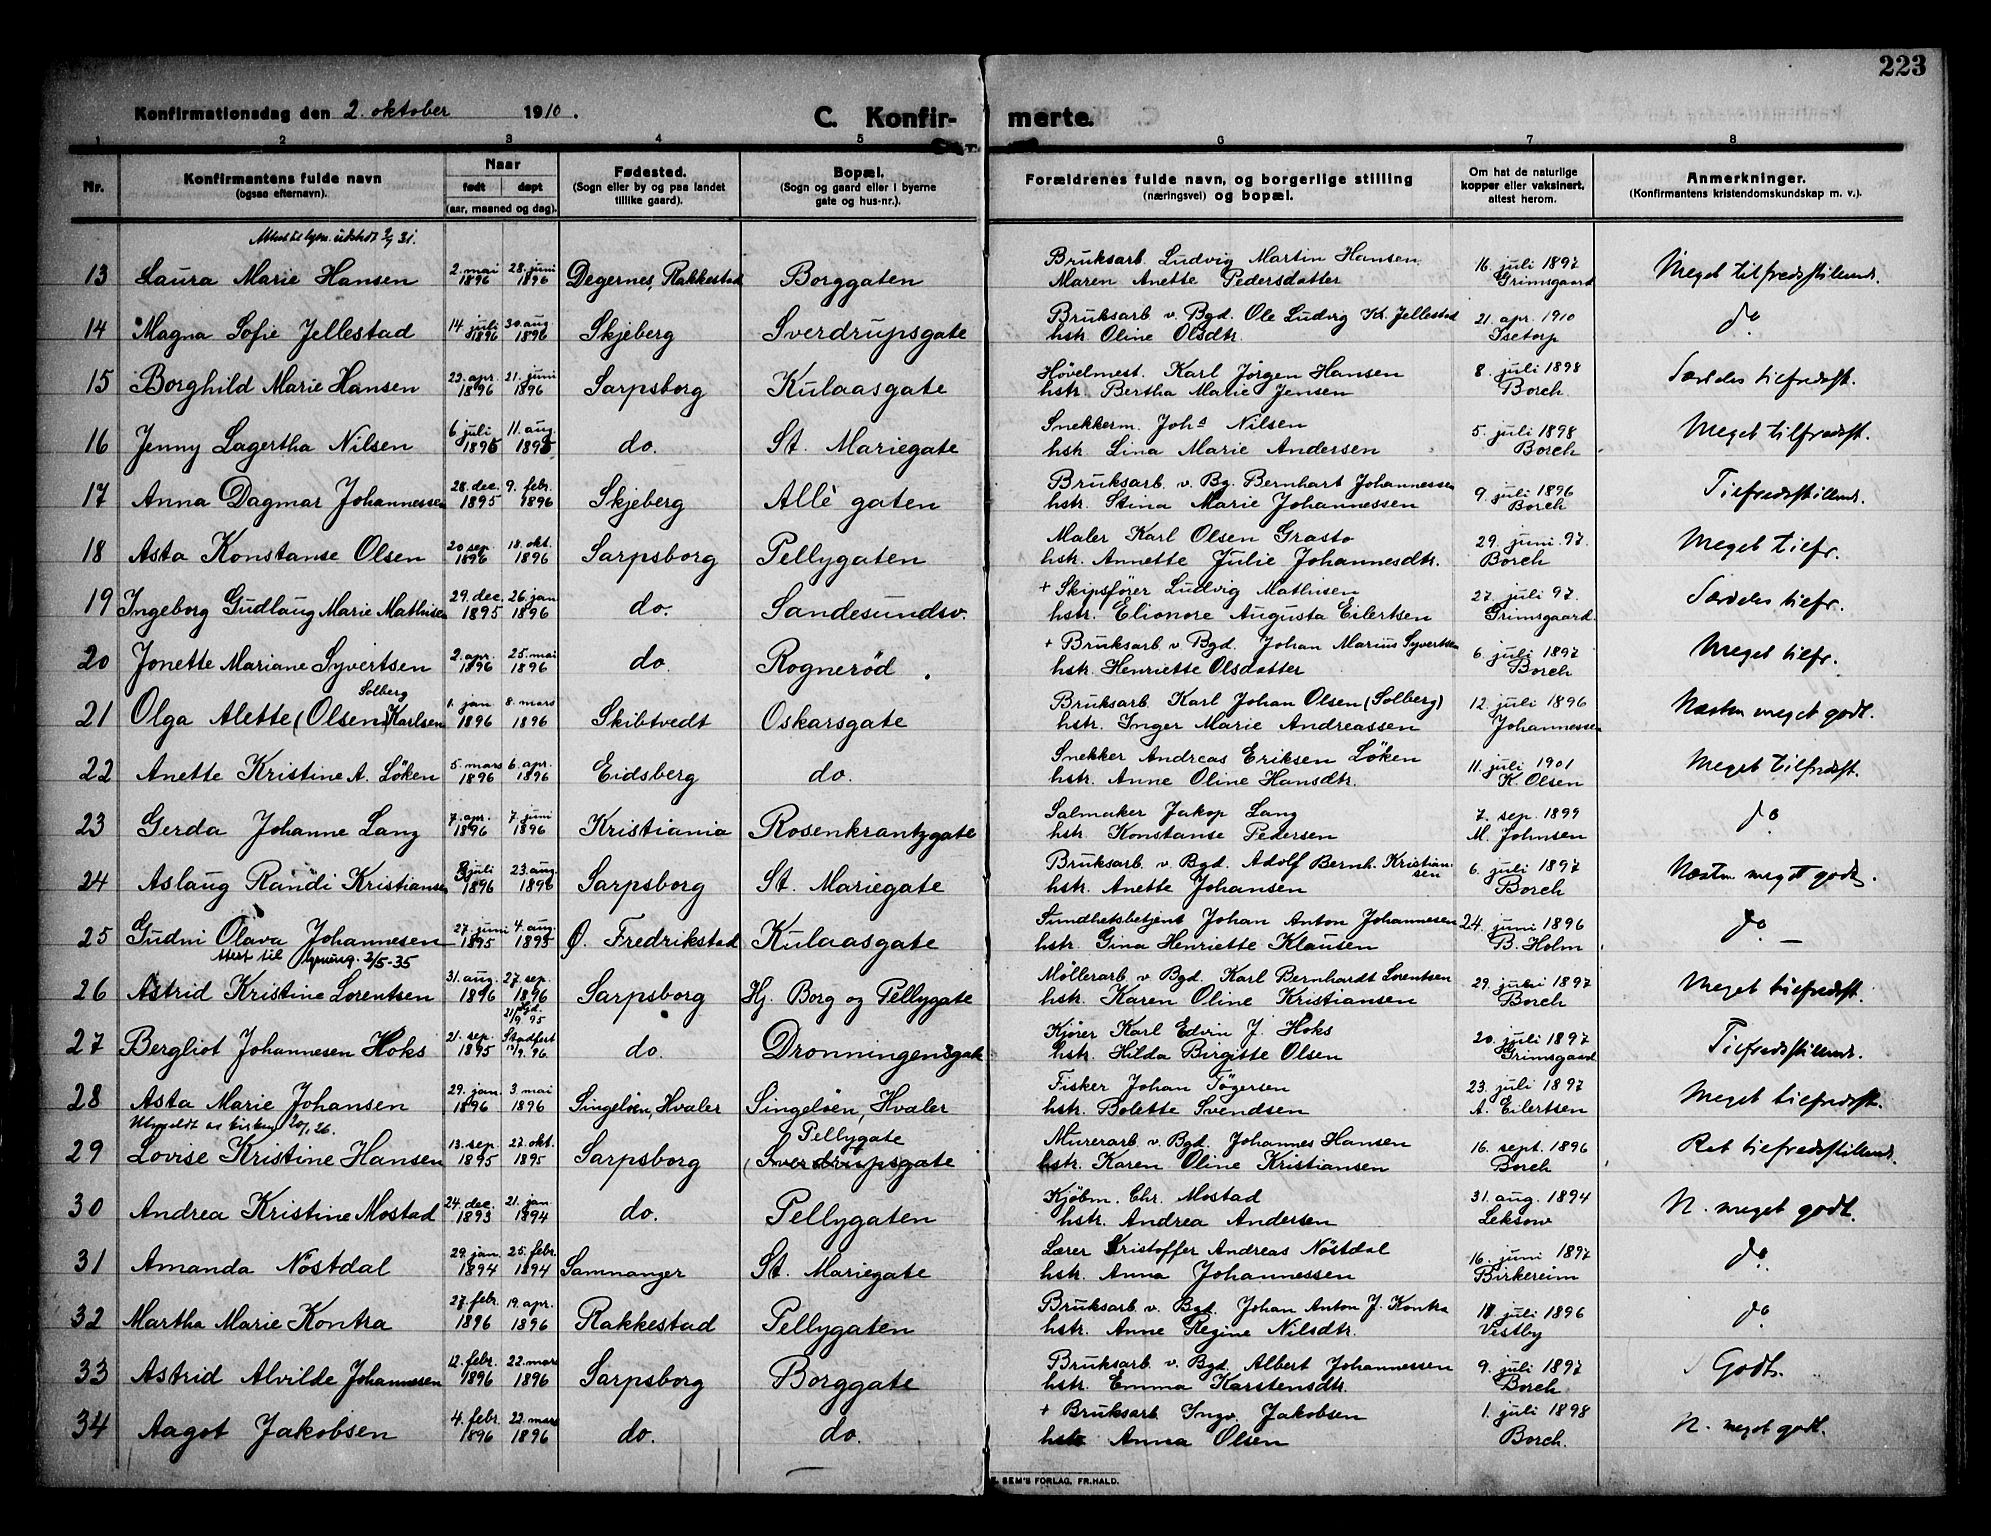 223
Konfirmationsdag den 2. oktober 1910.
C. Konfir- merte.
1 2 3 4 5 6 7 8
Nr. Konfirmantens fulde navn (ogsaa efternavn). Naar født døpt (aar, maaned og dag). Fødested. (Sogn eller by og paa landet tillike gaard). Bopæl. (Sogn og gaard eller i byerne gate og hus-nr.). Forældrenes fulde navn, og borgerlige stilling (næringsvei) og bopæl. Om hat de naturlige kopper eller vaksinert, attest herom. Anmerkninger. (Konfirmantens kristendomskundskap m. v.).
udstedt 31.
13 Laura Marie Hansen 2. mai 1896 28. juni 1896 Degernes, Rakkestad Borggaten Bruksarb. Ludvig Martin Hansen 16. juli 1897 Meget tilfredsstillend.
Maren Anette Pedersdatter Grimsgaard
14 Magna Sofie Jellestad 14. juli 1896 30. aug 1896 Skjeberg Sverdrupsgate Bruksarb v. Bgd. Ole Ludvig K. Jellestad 21. apr. 1910 do
hstr. Oline Olsdtr. Isetorp
15 Borghild Marie Hansen 29. apr. 1896 21. juni 1896 Sarpsborg Kulaasgate Hövelmest. Karl Jörgen Hansen 8. juli 1898 Særdeles tilfredsst.
hstr. Bertha Marie Jensen Borch.
16 Jenny Lagertha Nilsen 6. juli 1895 11. aug. 1895 do. St. Mariegate Snekkerm. Johs Nilsen 5. juli 1898 Meget tilfredsst.
hstr. Lina Marie Andersen Borch
17 Anna Dagmar Johannessen 28. dec. 1895 9. febr. 1896 Skjeberg Allè gaten Bruksarb. v. Bg. Bernhart Johannessen 9. juli 1896 Tilfredsstillend.
hstr. Stina Marie Johannessen Borch
18 Asta Konstanse Olsen 20. sep. 1896 18. okt. 1896 Sarpsborg Pellygaten Maler Karl Olsen Grasto 29. juni 97. Meget tilfr.
hstr. Annette Julie Johannesdtr. Borch
19 Ingeborg Gudlaug Marie Mathisen 29. dec. 1895 26. jan 1896 do. Sandesundsv. + Skipsfører Ludvig Mathisen 27. juli 97. Særdeles tilfr.
hstr. Elionore Augusta Eilertsen Grimsgaard.
20 Jonette Mariane Syvertsen 2. apr. 1896 25. mai 1896 do. Rognerød. + Bruksarb v. Bgd. Johan Marius Syvertsen 6. juli 1897 Meget tilfr.
hstr. Henriette Olsdatter Borch
Solberg
21 Olga Alette (Olsen) Karlsen 1. jan 1896 8. mars 1896 Skibtvedt Oskarsgate Bruksarb Karl Johan Olsen (Solberg) 12. juli 1896 Næsten meget godt.
hstr. Inger Marie Andreassen Johannessen
22 Anette Kristine A. Löken 5. mars 1896 6. apr. 1896 Eidsberg do. Snekker Andreas Eriksen Löken 11. juli 1901 Meget tilfredsst.
hstr. Anne Oline Hansdtr. K. Olsen
23 Gerda Johanne Lang 7. apr. 1896 7. juni 1896 Kristiania Rosenkrantzgate Salmaker Jakop Lang 7. sep. 1899 do
hstr. Konstanse Pedersen M. Johnsen
24 Aslaug Randi Kristiansen juli 1896 23. aug. 1896 Sarpsborg St. Mariegate Bruksarb v. Bgd. Adolf Bernh. Kristiansen 6. juli 1897 Næsten meget godt.
hstr. Anette Johansen Borch
25 Gudni Olava Johannesen 27. juni 1895 4. aug. 1895 Ø. Fredrikstad Kulaasgate Sundhetsbetjent Johan Anton Johannesen 24. juni 1896 do
Attest til lysning. 2/5-35 hstr. Gina Henriette Klausen B. Holm
26 Astrid Kristine Lorentsen 31. aug. 1896 27. sep. 1896 Sarpsborg Hj. Borg og Pellygate Møllerarb v. Bgd. Karl Bernhardt Lorentsen 29. juli 1897 Meget tilfredsst.
hstr. Karen Oline Kristiansen Borch
27 Bergliot Johannesen Hoks 21. sep. 1895 21/9 95 Stadfest 13/9. 96. do. Dronningensgate Kjører Karl Edvin J. Hoks 20. juli 1897 Tilfredsstillend.
hstr. Hilda Birgitte Olsen Grimsgaard
28 Asta Marie Johansen 29. jan. 1896 3. mai 1896 Singelöen, Hvaler Singelöen, Hvaler Fisker Johan Tögersen 23. juli 1897 Meget tilfredsst.
Utmeldt av kirken 20/1 26. hstr. Bolette Svendsen A. Eilertsen
29 Lovise Kristine Hansen 13. sep. 1895 27. okt. 1895 Sarpsborg Pellygate (Sverdrupsgate Murerarb v. Bgd. Johannes Hansen 16. sept. 1896 Ret tilfredsstillend.
hstr. Karen Oline Kristiansen Borch
30 Andrea Kristine Mostad 24. dec. 1893 21. jan. 1894 do. Pellygaten Kjöbm. Chr. Mostad 31. aug. 1894 N. meget godt.
hstr. Andrea Andersen Leksow
31 Amanda Nöstdal 29. jan. 1894 25. febr. 1894 Samnanger St. Mariegate Lærer Kristoffer Andreas Nöstdal 16. juni 1897 do.
hstr. Anna Johannessen Birkereim
32 Martha Marie Kontra 27. febr. 1896 19. apr. 1896 Rakkestad Pellygaten Bruksarb v. Bgd. Johan Anton J. Kontra 18. juli 1896 do
hstr. Anne Regine Nilsdtr. Vestby
33 Astrid Alvilde Johannessen 12. febr. 1896 22. mars 1896 Sarpsborg Borggate Bruksarb v. Bgd. Albert Johannessen 9. juli 1897 Godt.
hstr. Emma Karstensdtr. Borch
34 Aagot Jakobsen 4. febr. 1896 22. mars 1896 do. do. + Bruksarb Ingv. Jakobsen 1. juli 1898 N. meget godt.
hstr Anna Olsen Borch.
SEM'S FORLAG, FR.HALD.